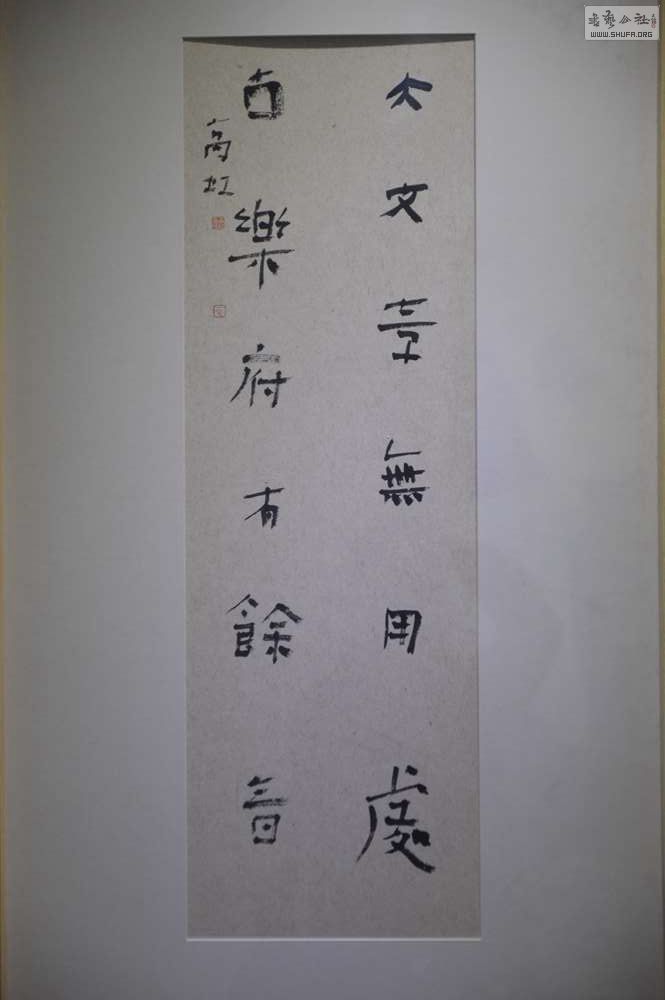 大文章無用處
古樂府有餘音
高虹
書藝公社
WWW.SHUFA.ORG